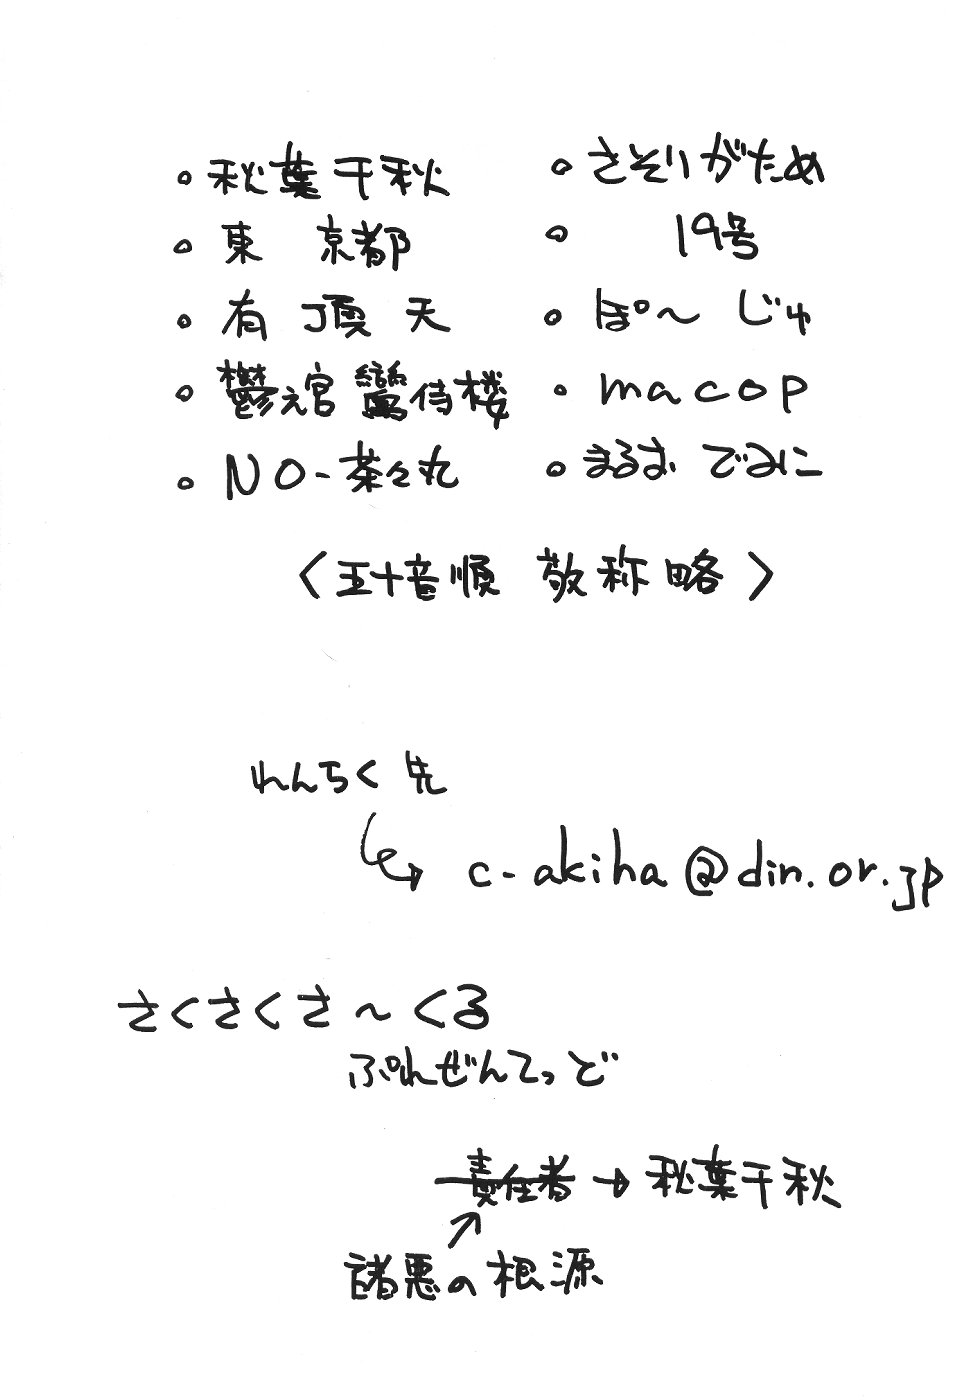 。秋葉千秋
。東 京都
。有頂天
。鬱え宮 鸞侍楼
。NO-茶々丸
。さそりがため
。19号
。ぽ〜じゅ
。macop
。まるお でみに
〈五十音順 敬称略〉
れんちく先
c-akiha@din.or.jp
さくさくさ〜くる
ぷれぜんてっど
責任者→秋葉千秋
諸悪の根源